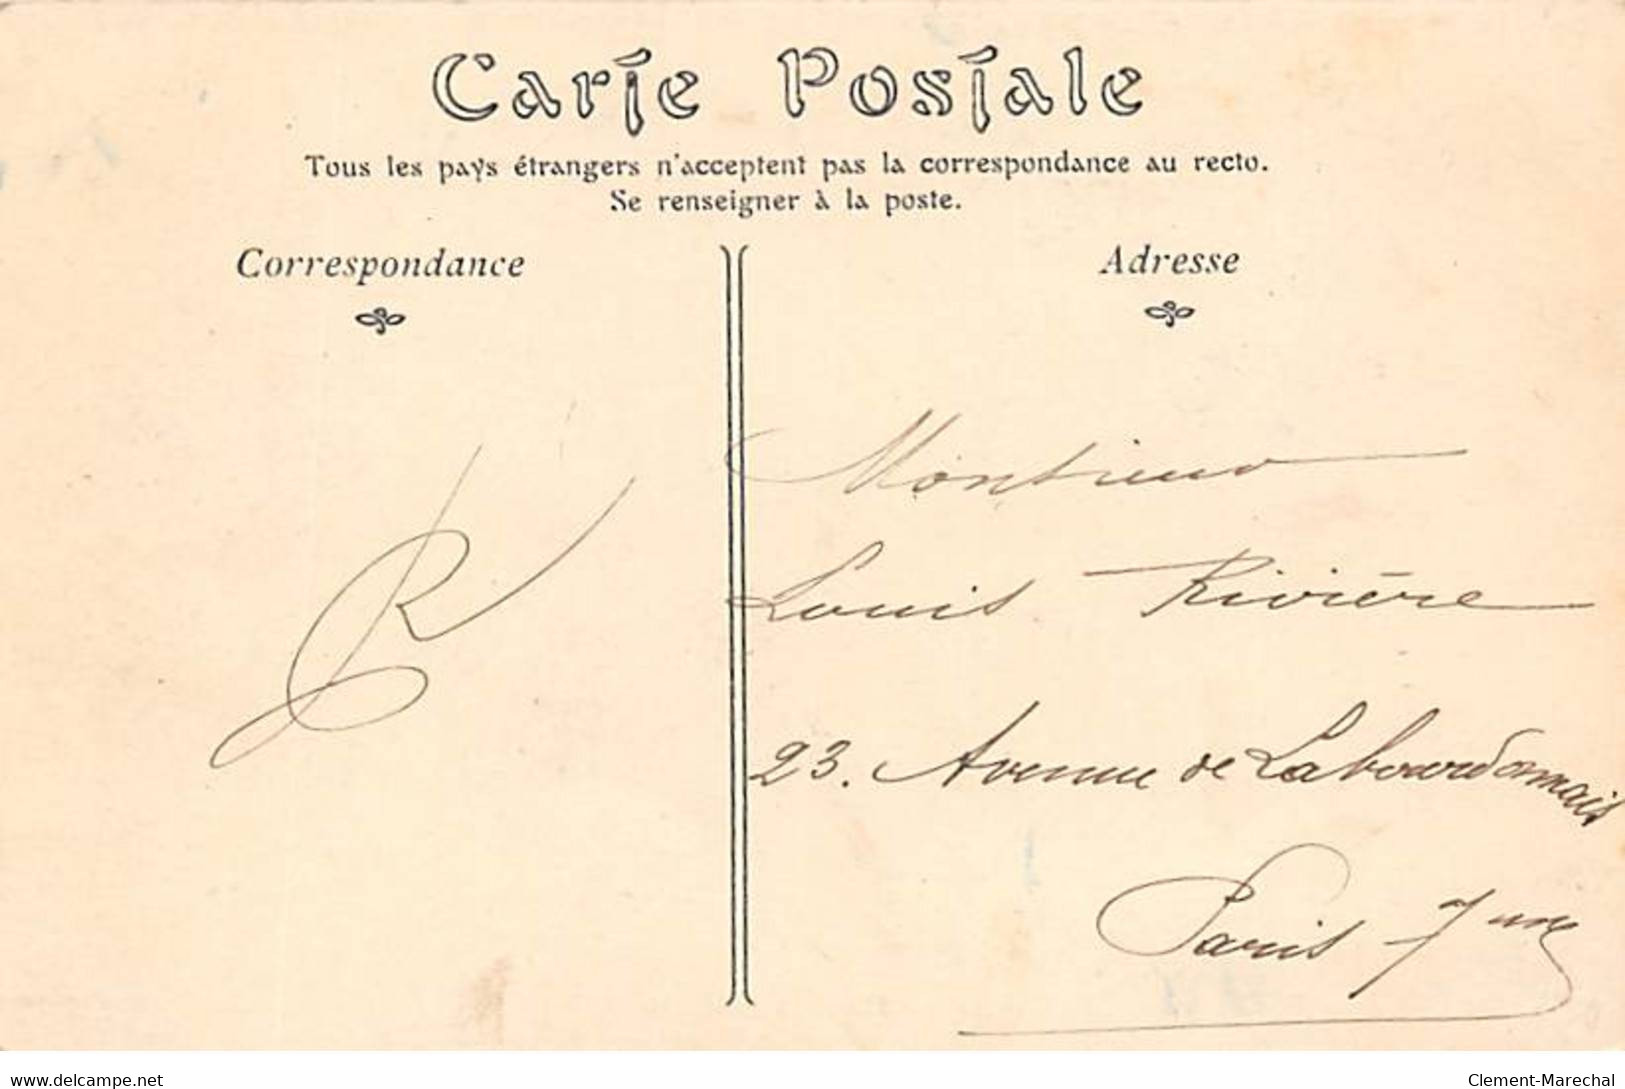 Carte Postale
Tous les pays étrangers n'acceptent pas la correspondance au recto.
Se renseigner à la poste.
Correspondance
Adresse
Monsieur
Louis Rivière
23. Avenue de Labourdonnais
Paris 7me
www.delcampe.net
Clement-Marechal